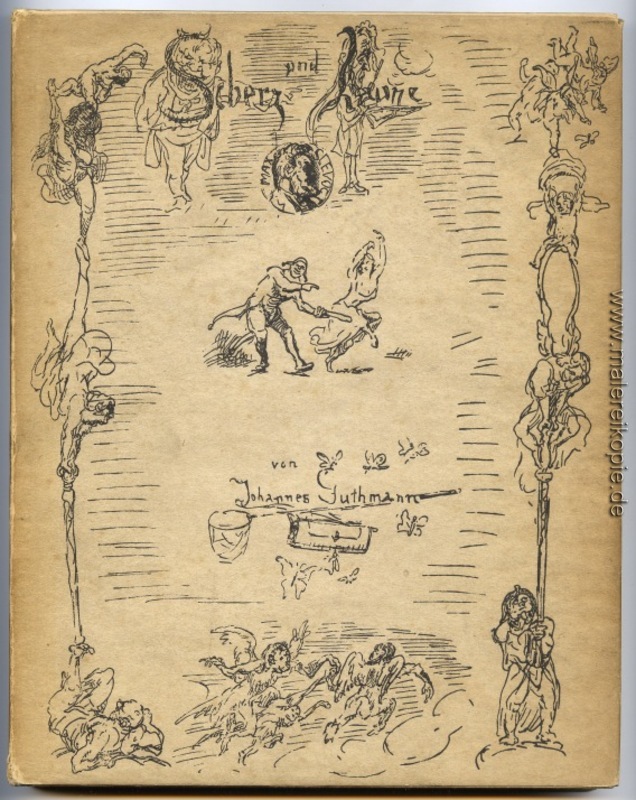 Scherz und Laune
von
Johannes Guthmann
www.malereikopie.de